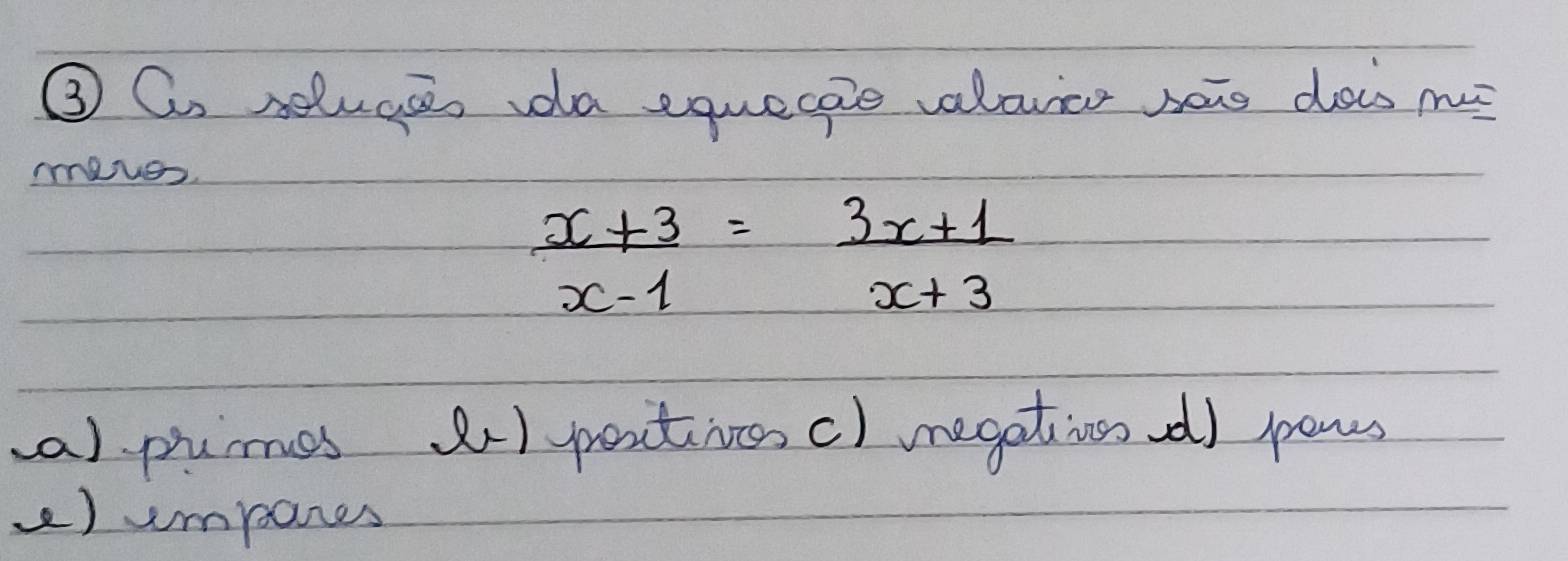 ③ As soluções da equação abaixo são dois nú
meros.
x+3 = 3x+1
x-1 x+3
a) primos b) positivos c) negativos d) pares
e) impares